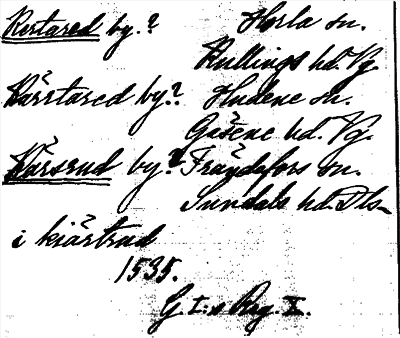 Kertared by.? Horla sn.
Kullings hd. Vg.
Kärrtared by.? Hudene sn.
Gäsene hd. Vg.
Kårsrud by.? Frändefors sn.
Sundals hd. Dls
i kiärtrud
1535.
G I:s Reg. X.